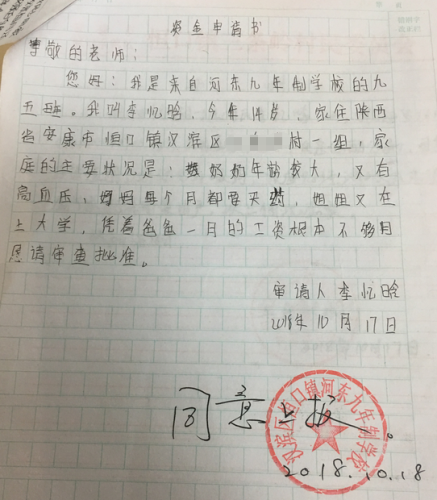 资金申请书
尊敬的老师：
您好：我是来自河东九年制学校的九
五班。我叫李忆晗，今年14岁，家住陕西
省安康市恒口镇汉滨区 村一组，家
庭的主要状况是：奶奶年龄教大，又有
高血压，妈妈每个月都要买药，姐姐又在
上大学，凭着爸爸一月的工资根本不够用
恳请审查批准。
审请人 李忆晗
2018年10月17日
同意上报。
汉滨区恒口镇河东九年制学校
2018.10.18